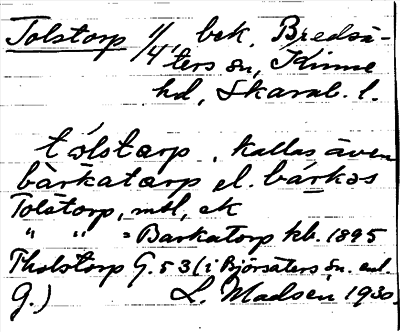 Tolstorp 1/4, bek. Bredsä-
ters sn, Kinne
hd, Skarab. l.
tólstærp, kallas även
bàrkatærp el. bárkas
Tolstorp, mtl, ek
" " = Barkatorp kb. 1895
Tholstorp G. 53 (i Björsäters sn. enl.
G.) L. Madsén 1930.